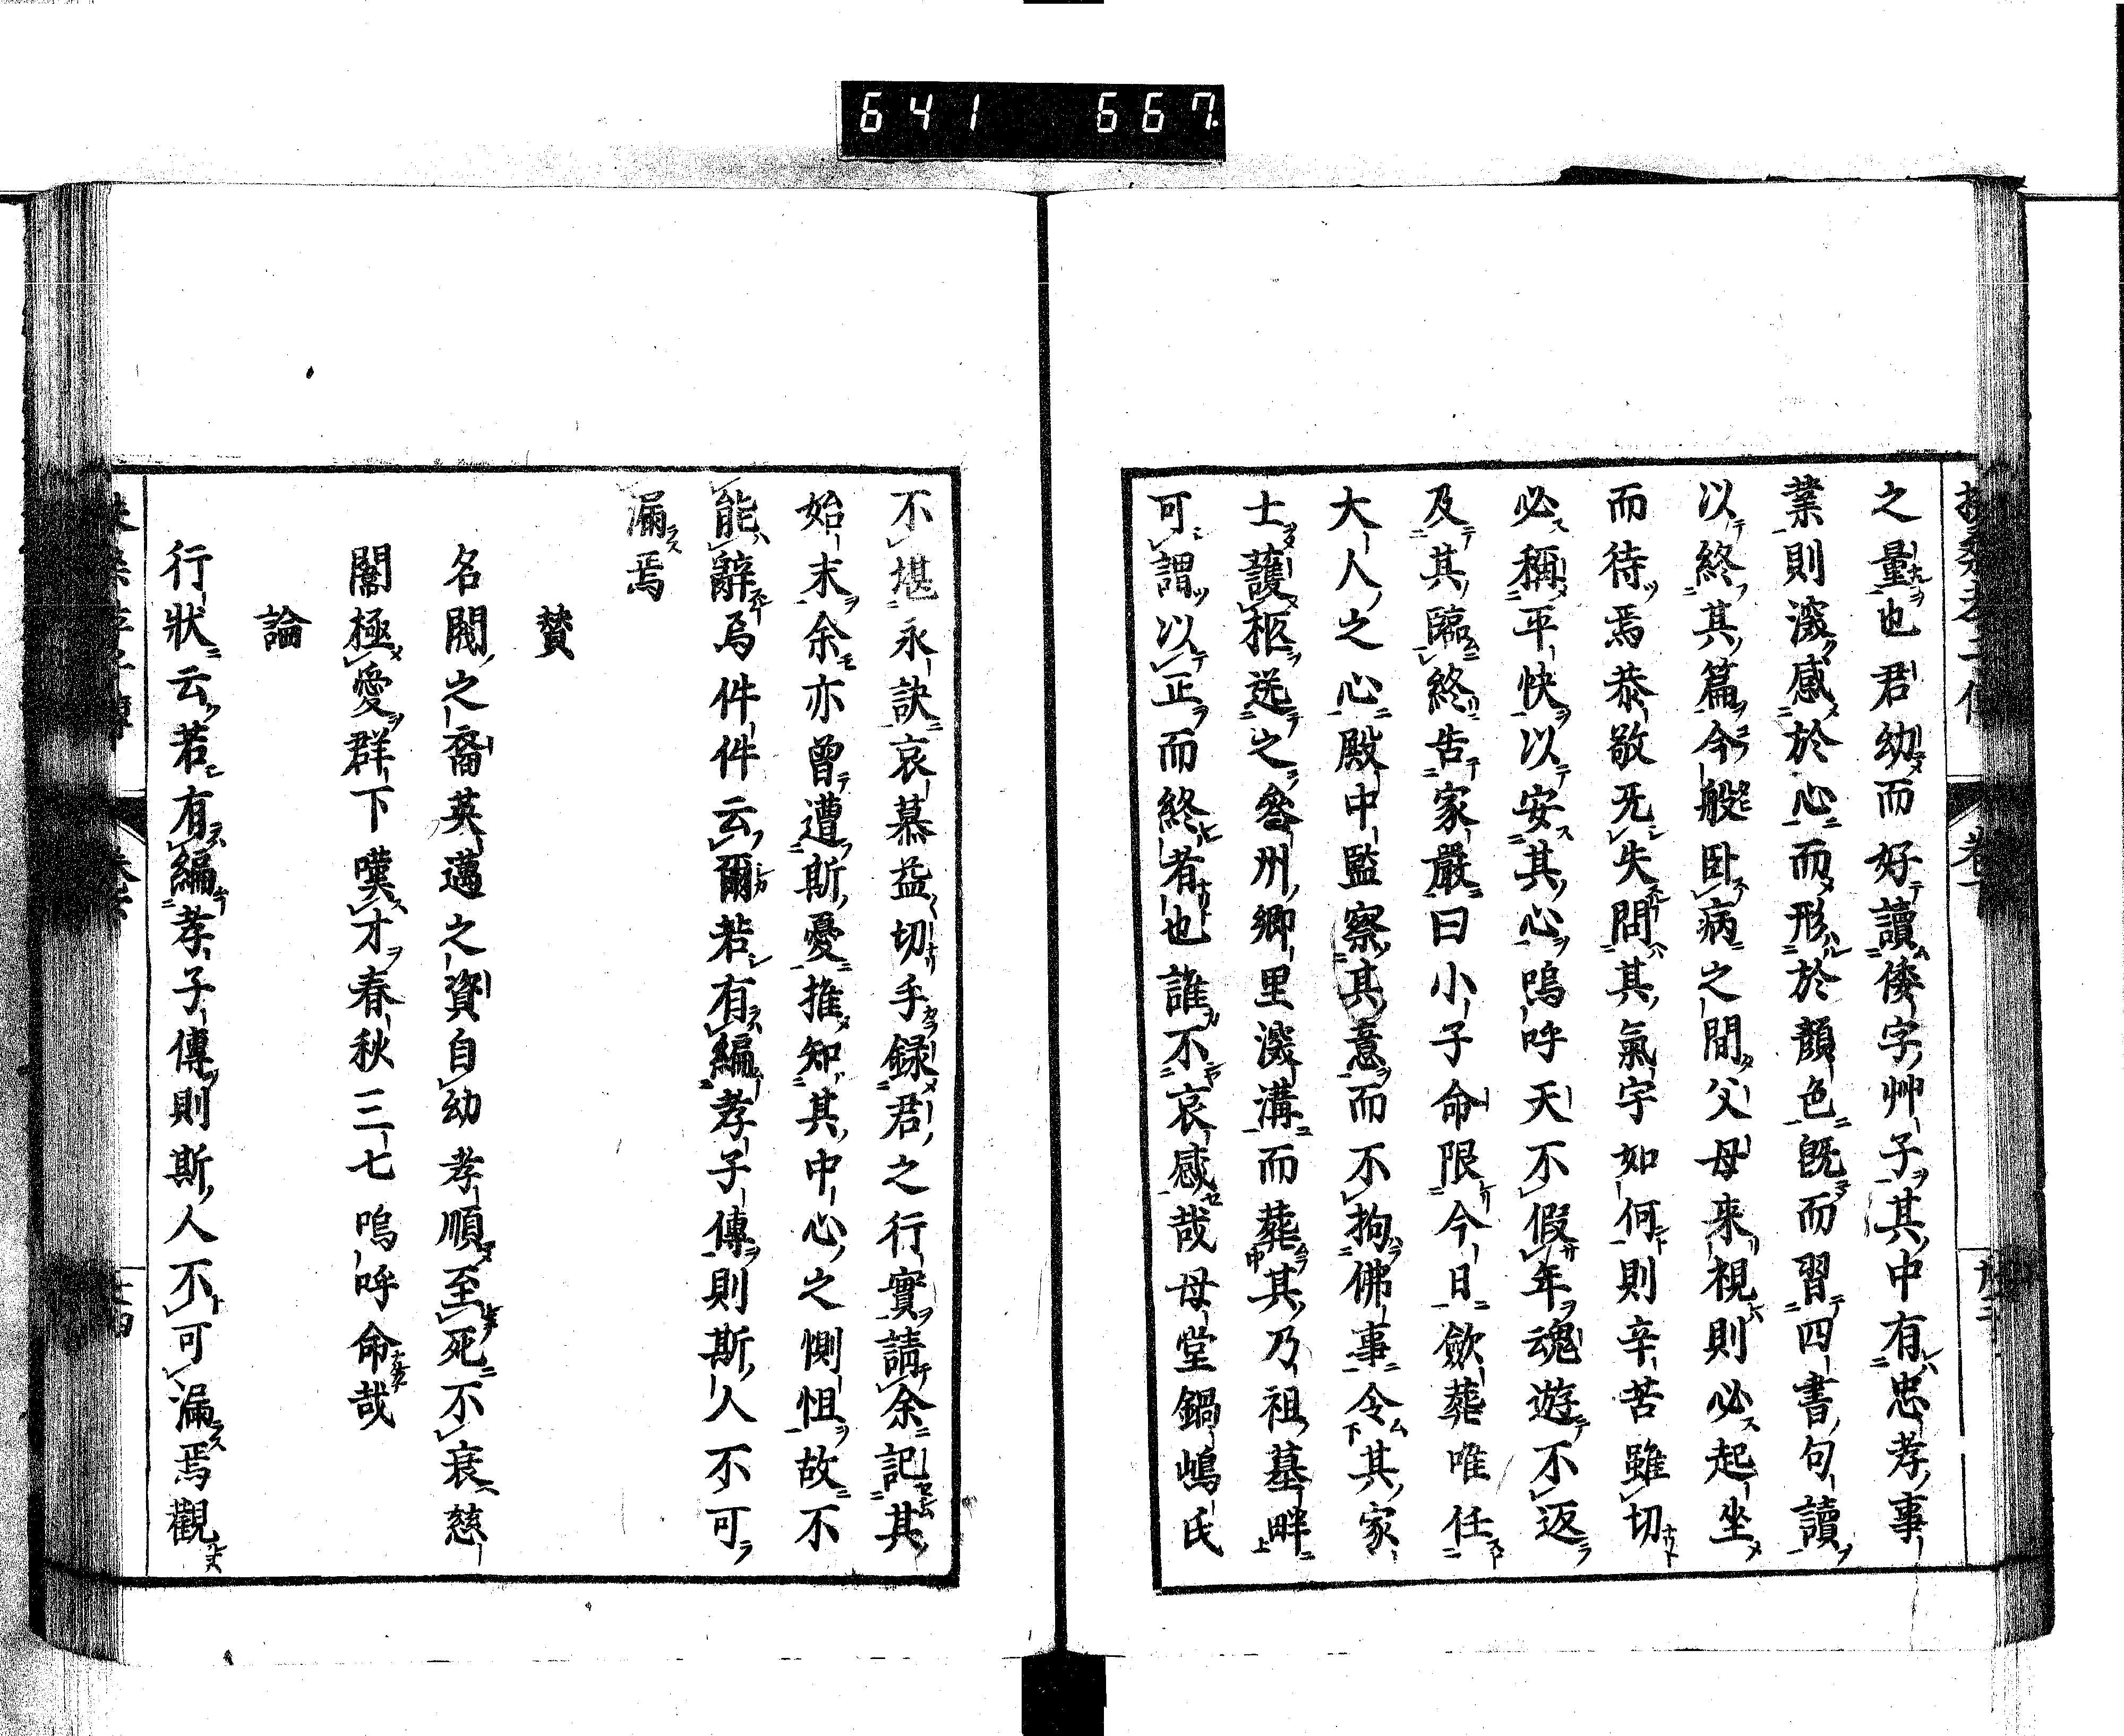 641 667
之量也君幼而好讀倭字艸子其中有忠孝事
業則深感於心而形於顏色既而習四書句讀
以終其篇今般臥病之間父母来視則必起坐
而待焉恭敬无失問其氣宇如何則辛苦雖切
必稱平快以安其心嗚呼天不假年魂遊不返
及其臨終告家嚴曰小子命限今日歛葬唯任
大人之心殿中監察其意而不拘佛事令其家
士護柩送之参州郷里深溝而葬其乃祖墓畔
可謂以正而終者也誰不哀感哉母堂鍋嶋氏
不堪永訣哀慕益切手録君之行實請余記其
始末余亦曾遭斯憂推知其中心之惻怛故不
能辭為件件云爾若有編孝子傳則斯人不可
漏焉
賛
名閥之裔英邁之資自幼孝順至死不衰慈
闈極愛群下嘆才春秋三七嗚呼命哉
論
行狀云若有編孝子傳則斯人不可漏焉觀